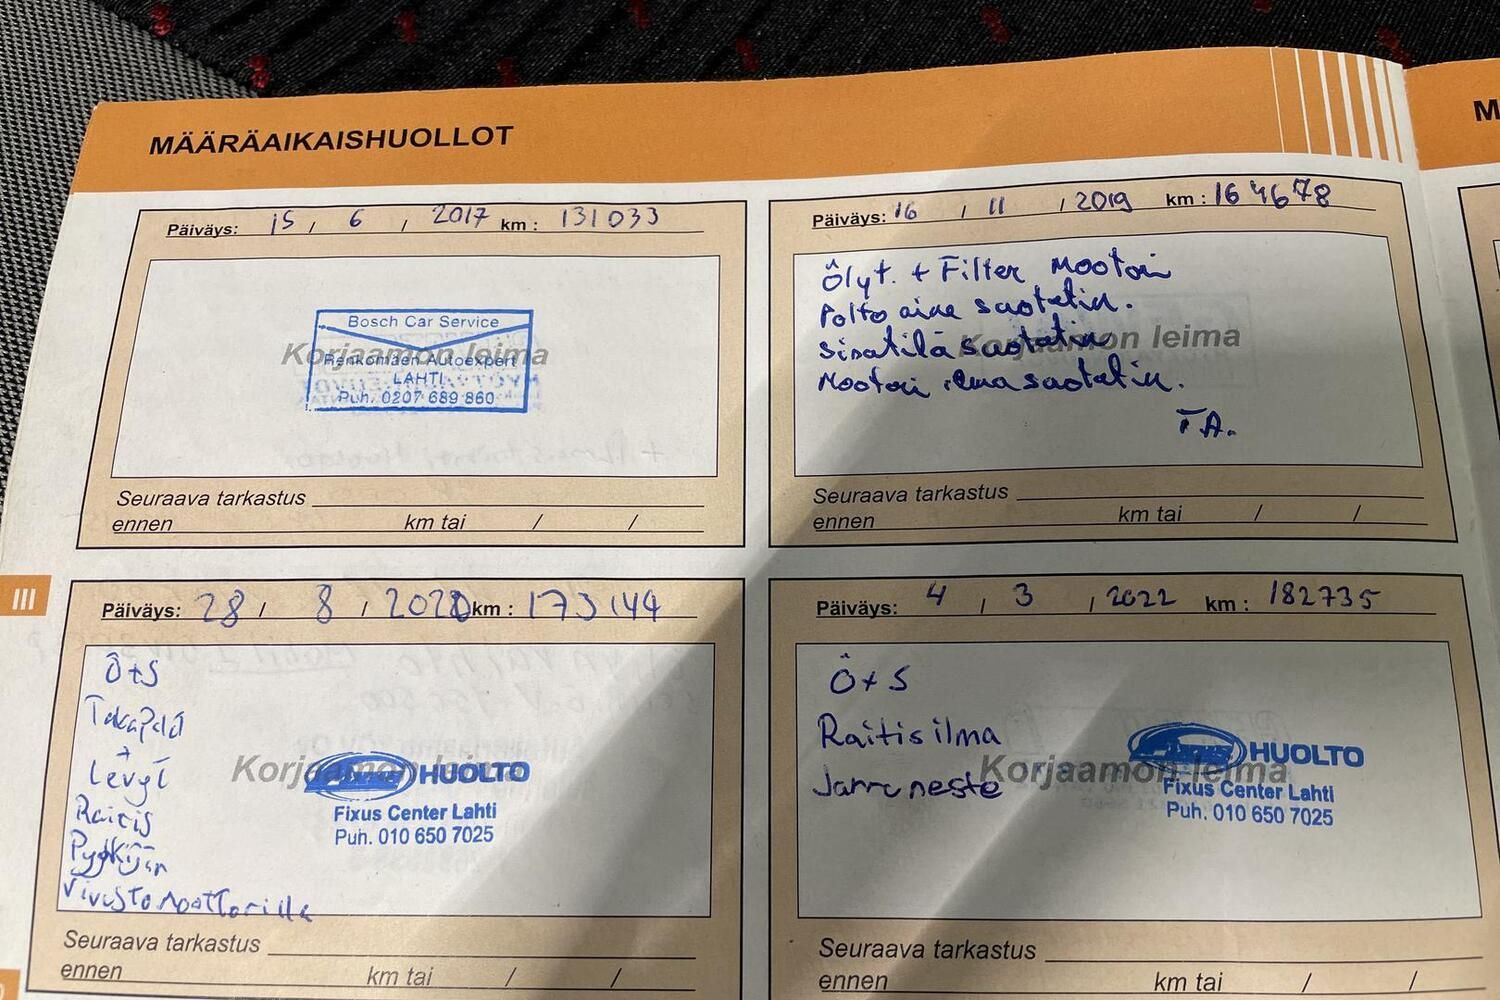 MÄÄRÄAIKAISHUOLLOT
Päiväys: 15 / 6 / 2017 km : 131033
Korjaamon leima
Bosch Car Service
Renkomäen Autoexpert
LAHTI
Puh. 0207 689 860
Seuraava tarkastus
ennen km tai / /
Päiväys: 16 / 11 / 2019 km : 164678
Ölyt. + Filter Mootori
Polto aine suotatin.
Sisatilä suotatin
Mootori ilma suotatin.
Korjaamon leima
TA.
Seuraava tarkastus
ennen km tai / /
III
Päiväys: 28 / 8 / 2020 km : 173144
Ö+S
Takapalat
+
Levyt
Raitis
Pyyhkijän
Vivustomoottorilla
Korjaamon leima
HUOLTO
Fixus Center Lahti
Puh. 010 650 7025
Seuraava tarkastus
ennen km tai / /
Päiväys: 4 / 3 / 2022 km : 182735
Ö+S
Raitisilma
Jarruneste
Korjaamon leima
HUOLTO
Fixus Center Lahti
Puh. 010 650 7025
Seuraava tarkastus
ennen km tai / /
M